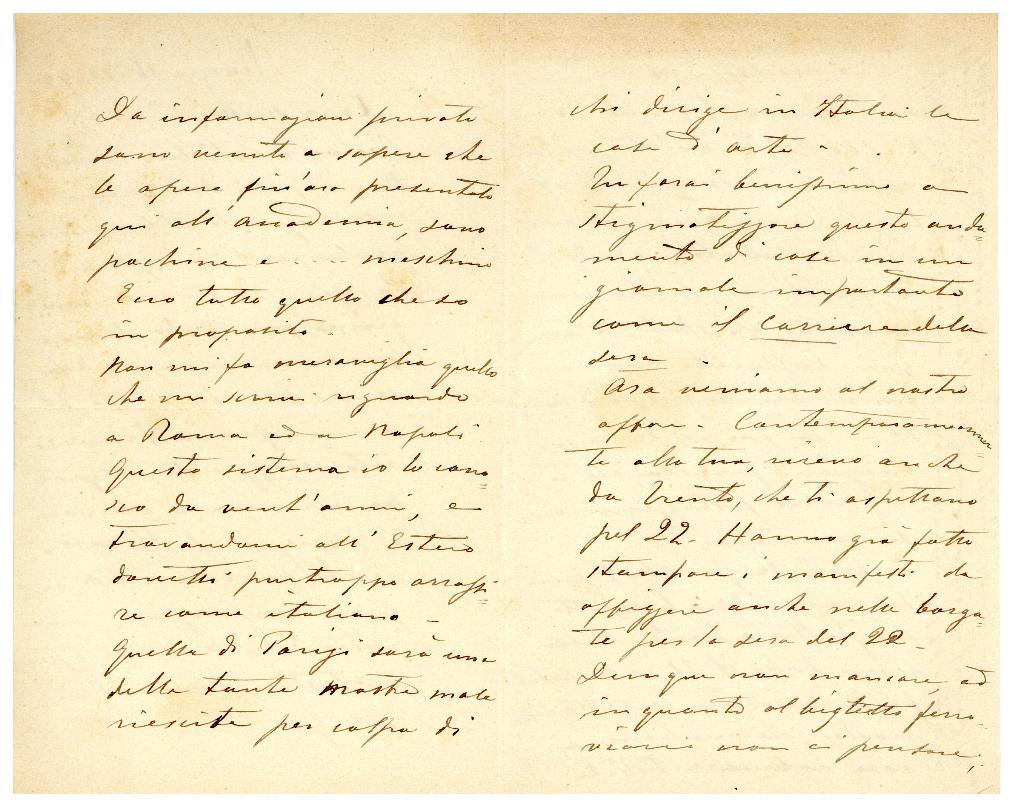 Da informazioni private
sono venuto a sapere che
le opere fin'ora presentate
qui all'Accademia, sono
pochine e .... meschine
Ecco tutto quello che so
in proposito.
Non mi fa meraviglia quello
che mi scrivi riguardo
a Roma ed a Napoli
Questo sistema io lo cono=
sco da vent'anni, e
trovandomi all'Estero
dovetti purtroppo arrossi=
re come italiano -
Quella di Parigi sarà una
delle tante mostre male
riescite per colpa di
chi dirige in Italia le
cose d'arte -
Tu farai benissimo a
stigmatizzare questo anda=
mento di cose in un
giornale importante
come il Corriere della
sera -
Ora veniamo al nostro
affare - Contemporaneamen
te alla tua, ricevo anche
da Trento, che ti aspettano
pel 22 - Hanno già fatto
stampare i manifesti da
affiggere anche nelle borga=
te per la sera del 22 -
Dunque non mancare, ed
in quanto al biglietto ferro=
viario non ci pensare;